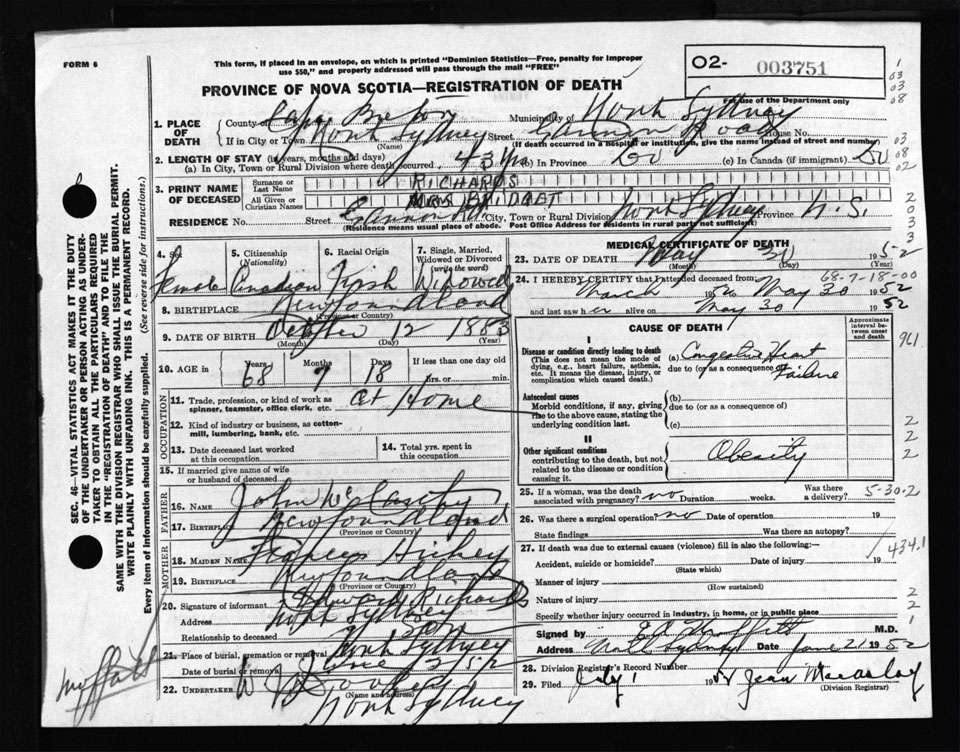 FORM 6
This form, if placed in an envelope, on which is printed "Dominion Statistics—Free, penalty for improper
use $50," and properly addressed will pass through the mail "FREE"
O2- 003751
For use of the Department only
PROVINCE OF NOVA SCOTIA—REGISTRATION OF DEATH
1. PLACE OF DEATH
County of Cape Breton Municipality of North Sydney
If in City or Town North Sydney Street Road House No.
(Name) (If death occurred in a hospital or institution, give its name instead of street and number)
2. LENGTH OF STAY (in years, months and days)
(a) In City, Town or Rural Division where death occurred 43 yrs (b) In Province Do (c) In Canada (if immigrant) Do
3. PRINT NAME OF DECEASED
Surname or Last Name RICHARDS
All Given or Christian Names MRS BRIDGET
RESIDENCE No. Street Rd. City, Town or Rural Division North Sydney Province N.S.
(Residence means usual place of abode. Post Office Address for residents in rural part not sufficient)
4. Sex Female
5. Citizenship (Nationality) Canadian
6. Racial Origin Irish
7. Single, Married, Widowed or Divorced (write the word) Widowed
8. BIRTHPLACE Newfoundland
(Province or Country)
9. DATE OF BIRTH October 12 1883
(Month) (Day) (Year)
10. AGE in Years 68 Months 7 Days 18 If less than one day old
hrs. or min.
OCCUPATION
11. Trade, profession, or kind of work as spinner, teamster, office clerk, etc. At Home
12. Kind of industry or business, as cotton-mill, lumbering, bank, etc.
13. Date deceased last worked at this occupation
14. Total yrs. spent in this occupation
15. If married give name of wife or husband of deceased
FATHER
16. Name John McCarthy
17. Birthplace Newfoundland
(Province or Country)
MOTHER
18. MAIDEN NAME Frances Hickey
19. BIRTHPLACE Newfoundland
(Province or Country)
20. Signature of informant Edward Richards
Address North Sydney
Relationship to deceased Son
21. Place of burial, cremation or removal North Sydney
Date of burial or removal June 1 1952
22. UNDERTAKER W J Dooley
(Name and address)
North Sydney
MEDICAL CERTIFICATE OF DEATH
23. DATE OF DEATH May 30 1952
(Month) (Day) (Year)
68-7-18-00
24. I HEREBY CERTIFY that I attended deceased from:
March 1950 to May 30 1952
and last saw her alive on May 30 1952
CAUSE OF DEATH
Approximate interval between onset and death
I
Disease or condition directly leading to death
(This does not mean the mode of dying, e.g., heart failure, asthenia, etc. It means the disease, injury, or complication which caused death.)
(a) Congestive Heart Failure
due to (or as a consequence of)
Antecedent causes
Morbid conditions, if any, giving rise to the above cause, stating the underlying condition last.
(b)
due to (or as a consequence of)
(c)
II
Other significant conditions
contributing to the death, but not related to the disease or condition causing it.
Obesity
25. If a woman, was the death associated with pregnancy? no Duration weeks. Was there a delivery?
5-30.2
26. Was there a surgical operation? no Date of operation 19
State findings Was there an autopsy?
27. If death was due to external causes (violence) fill in also the following:—
Accident, suicide or homicide? Date of injury 19
(State which)
434.1
Manner of injury
(How sustained)
Nature of injury
Specify whether injury occurred in industry, in home, or in public place
Signed by M.D.
Address North Sydney Date June 21 1952
28. Division Registrar's Record Number
29. Filed July 1 1952 Jean Macaulay
(Division Registrar)
SEC. 46—VITAL STATISTICS ACT MAKES IT THE DUTY
OF THE UNDERTAKER OR PERSON ACTING AS UNDER-
TAKER TO OBTAIN ALL THE PARTICULARS REQUIRED
IN THE "REGISTRATION OF DEATH" AND TO FILE THE
SAME WITH THE DIVISION REGISTRAR WHO SHALL ISSUE THE BURIAL PERMIT.
WRITE PLAINLY WITH UNFADING INK. THIS IS A PERMANENT RECORD.
Every item of information should be carefully supplied. (See reverse side for instructions.)
Moffatt